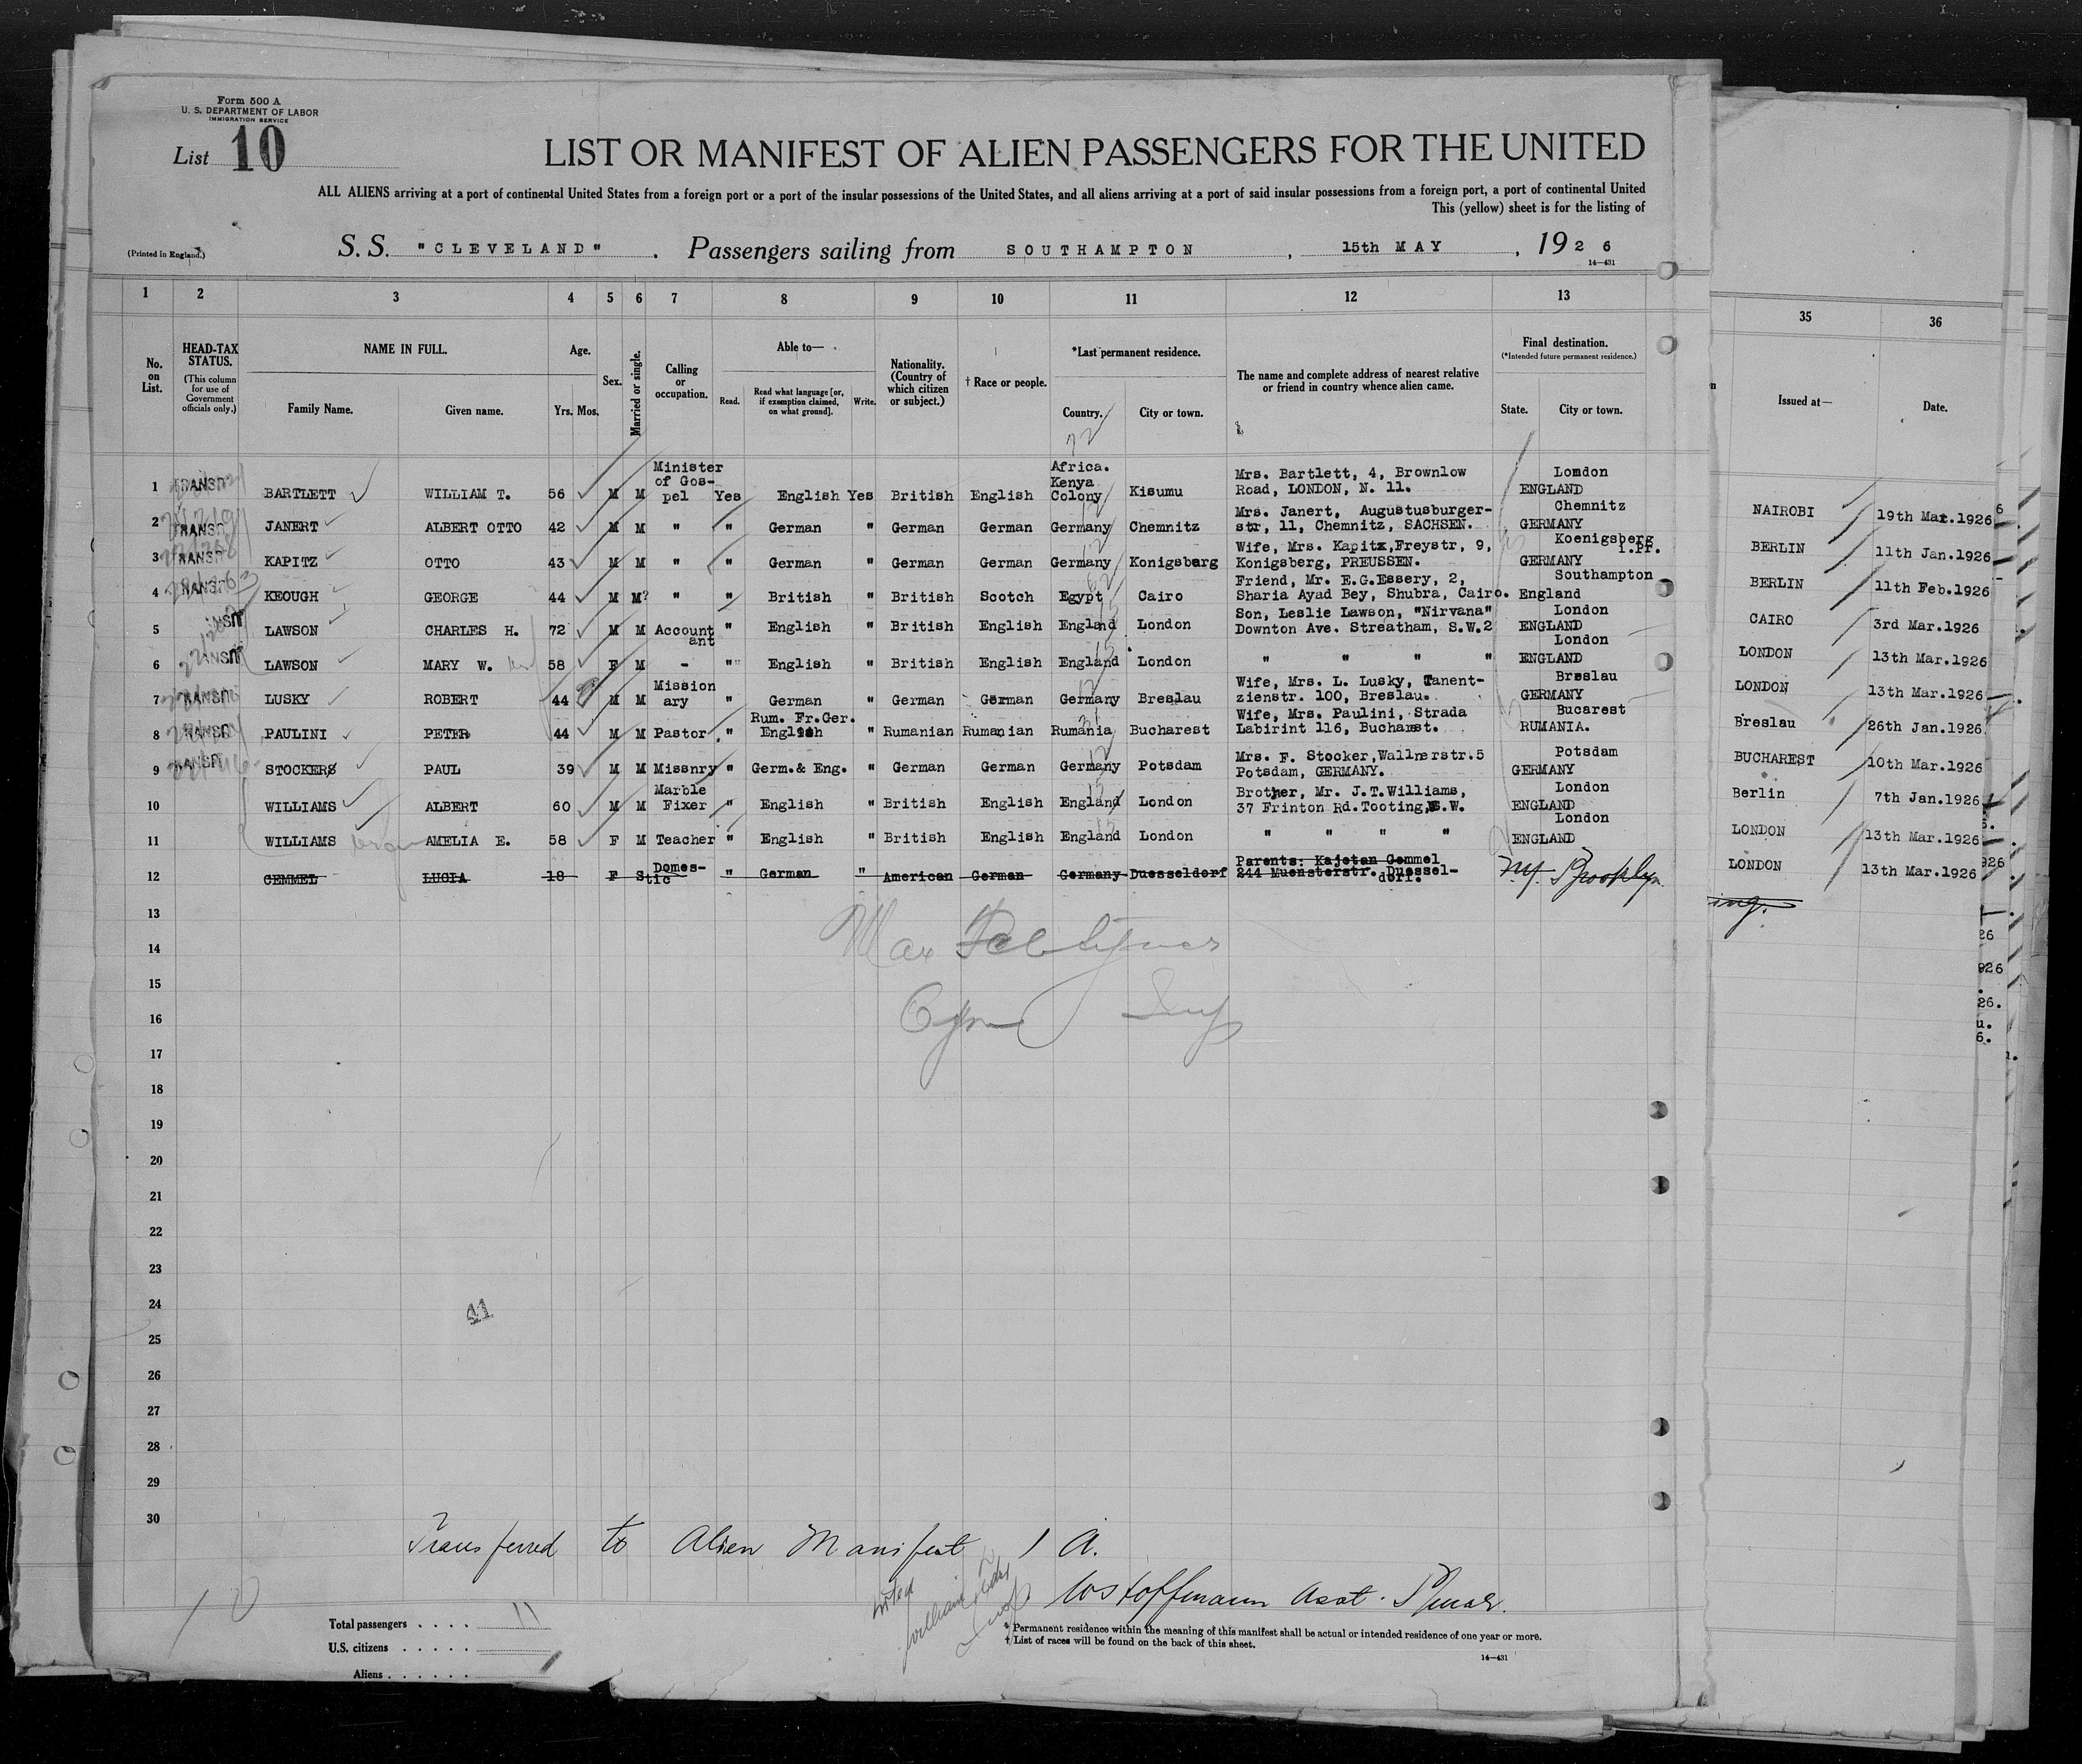 Form 500 A
U. S. DEPARTMENT OF LABOR
IMMIGRATION SERVICE
List 10
LIST OR MANIFEST OF ALIEN PASSENGERS FOR THE UNITED
ALL ALIENS arriving at a port of continental United States from a foreign port or a port of the insular possessions of the United States, and all aliens arriving at a port of said insular possessions from a foreign port, a port of continental United
This (yellow) sheet is for the listing of
(Printed in England.) S. S. "CLEVELAND". Passengers sailing from SOUTHAMPTON, 15th MAY, 1926
14—431
1 2 3 4 5 6 7 8 9 10 11 12 13 35 36
No. on List.
HEAD-TAX STATUS.
(This column for use of Government officials only.)
NAME IN FULL.
Family Name. Given name.
Age.
Yrs. Mos.
Sex.
Married or single.
Calling or occupation.
Able to—
Read. Read what language [or, if exemption claimed, on what ground]. Write.
Nationality. (Country of which citizen or subject.)
† Race or people.
*Last permanent residence.
Country. City or town.
The name and complete address of nearest relative or friend in country whence alien came.
Final destination.
(*Intended future permanent residence.)
State. City or town.
Issued at— Date.
1 TRANSIT BARTLETT WILLIAM T. 56 M M Minister of Gospel Yes English Yes British English Africa. Kenya Colony Kisumu Mrs. Bartlett, 4, Brownlow Road, LONDON, N. 11. London ENGLAND NAIROBI 19th Mar.1926
2 TRANSIT JANERT ALBERT OTTO 42 M M " " German " German German Germany Chemnitz Mrs. Janert, Augustusburger-str, 11, Chemnitz, SACHSEN. Chemnitz GERMANY BERLIN 11th Jan.1926
3 TRANSIT KAPITZ OTTO 43 M M " " German " German German Germany Konigsberg Wife, Mrs. Kapitz,Freystr, 9, Konigsberg, PREUSSEN. Koenigsberg i.Pr. GERMANY BERLIN 11th Feb.1926
4 TRANSIT KEOUGH GEORGE 44 M M? " " British " British Scotch Egypt Cairo Friend, Mr. E.G.Essery, 2, Sharia Ayad Bey, Shubra, Cairo. Southampton England CAIRO 3rd Mar.1926
5 TRANSIT LAWSON CHARLES H. 72 M M Accountant " English " British English England London Son, Leslie Lawson, "Nirvana" Downton Ave. Streatham, S.W.2 London ENGLAND LONDON 13th Mar.1926
6 TRANSIT LAWSON MARY W. 58 F M - " English " British English England London " " " " London ENGLAND LONDON 13th Mar.1926
7 TRANSIT LUSKY ROBERT 44 M M Missionary " German " German German Germany Breslau Wife, Mrs. L. Lusky, Tanent-zienstr. 100, Breslau. Breslau GERMANY Breslau 26th Jan.1926
8 TRANSIT PAULINI PETER 44 M M Pastor " Rum. Fr.Ger. English " Rumanian Rumanian Rumania Bucharest Wife, Mrs. Paulini, Strada Labirint 116, Bucharest. Bucarest RUMANIA. BUCHAREST 10th Mar.1926
9 TRANSIT STOCKERS PAUL 39 M M Missnry " Germ.& Eng. " German German Germany Potsdam Mrs. F. Stocker,Wallnerstr.5 Potsdam, GERMANY. Potsdam GERMANY Berlin 7th Jan.1926
10 WILLIAMS ALBERT 60 M M Marble Fixer " English " British English England London Brother, Mr. J.T.Williams, 37 Frinton Rd.Tooting,S.W. London ENGLAND LONDON 13th Mar.1926
11 WILLIAMS AMELIA E. 58 F M Teacher " English " British English England London " " " " London ENGLAND LONDON 13th Mar.1926
12 GEMMEL LUCIA 18 F S Domestic " German " American German Germany Duesseldorf Parents: Kajetan Gemmel 244 Muensterstr. Duesseldorf. N.Y. Brooklyn
13
14
15
16
17
18
19
20
21
22
23
24
41
25
26
27
28
29
30
Transferred to Alien Manifest 1 A.
W Hoffmann Asst.
10
Total passengers . . . . 11
U.S. citizens . . . . .
Aliens . . . . . .
* Permanent residence within the meaning of this manifest shall be actual or intended residence of one year or more.
† List of races will be found on the back of this sheet.
14—431